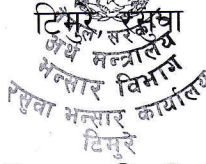 टिमुरे, रसुवा
नेपाल सरकार
अर्थ मन्त्रालय
भन्सार विभाग
रसुवा भन्सार कार्यालय
टिमुरे